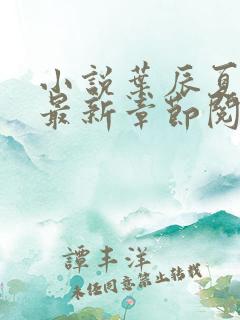 小説葉辰夏
最新章節閱
譚丰洋
未经同意禁止转载